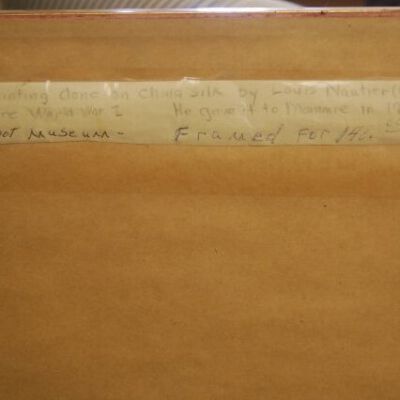 ainting done on China Silk by Louis Nautier
re World War I He gave it to Mamere in
oot Museum - Framed for